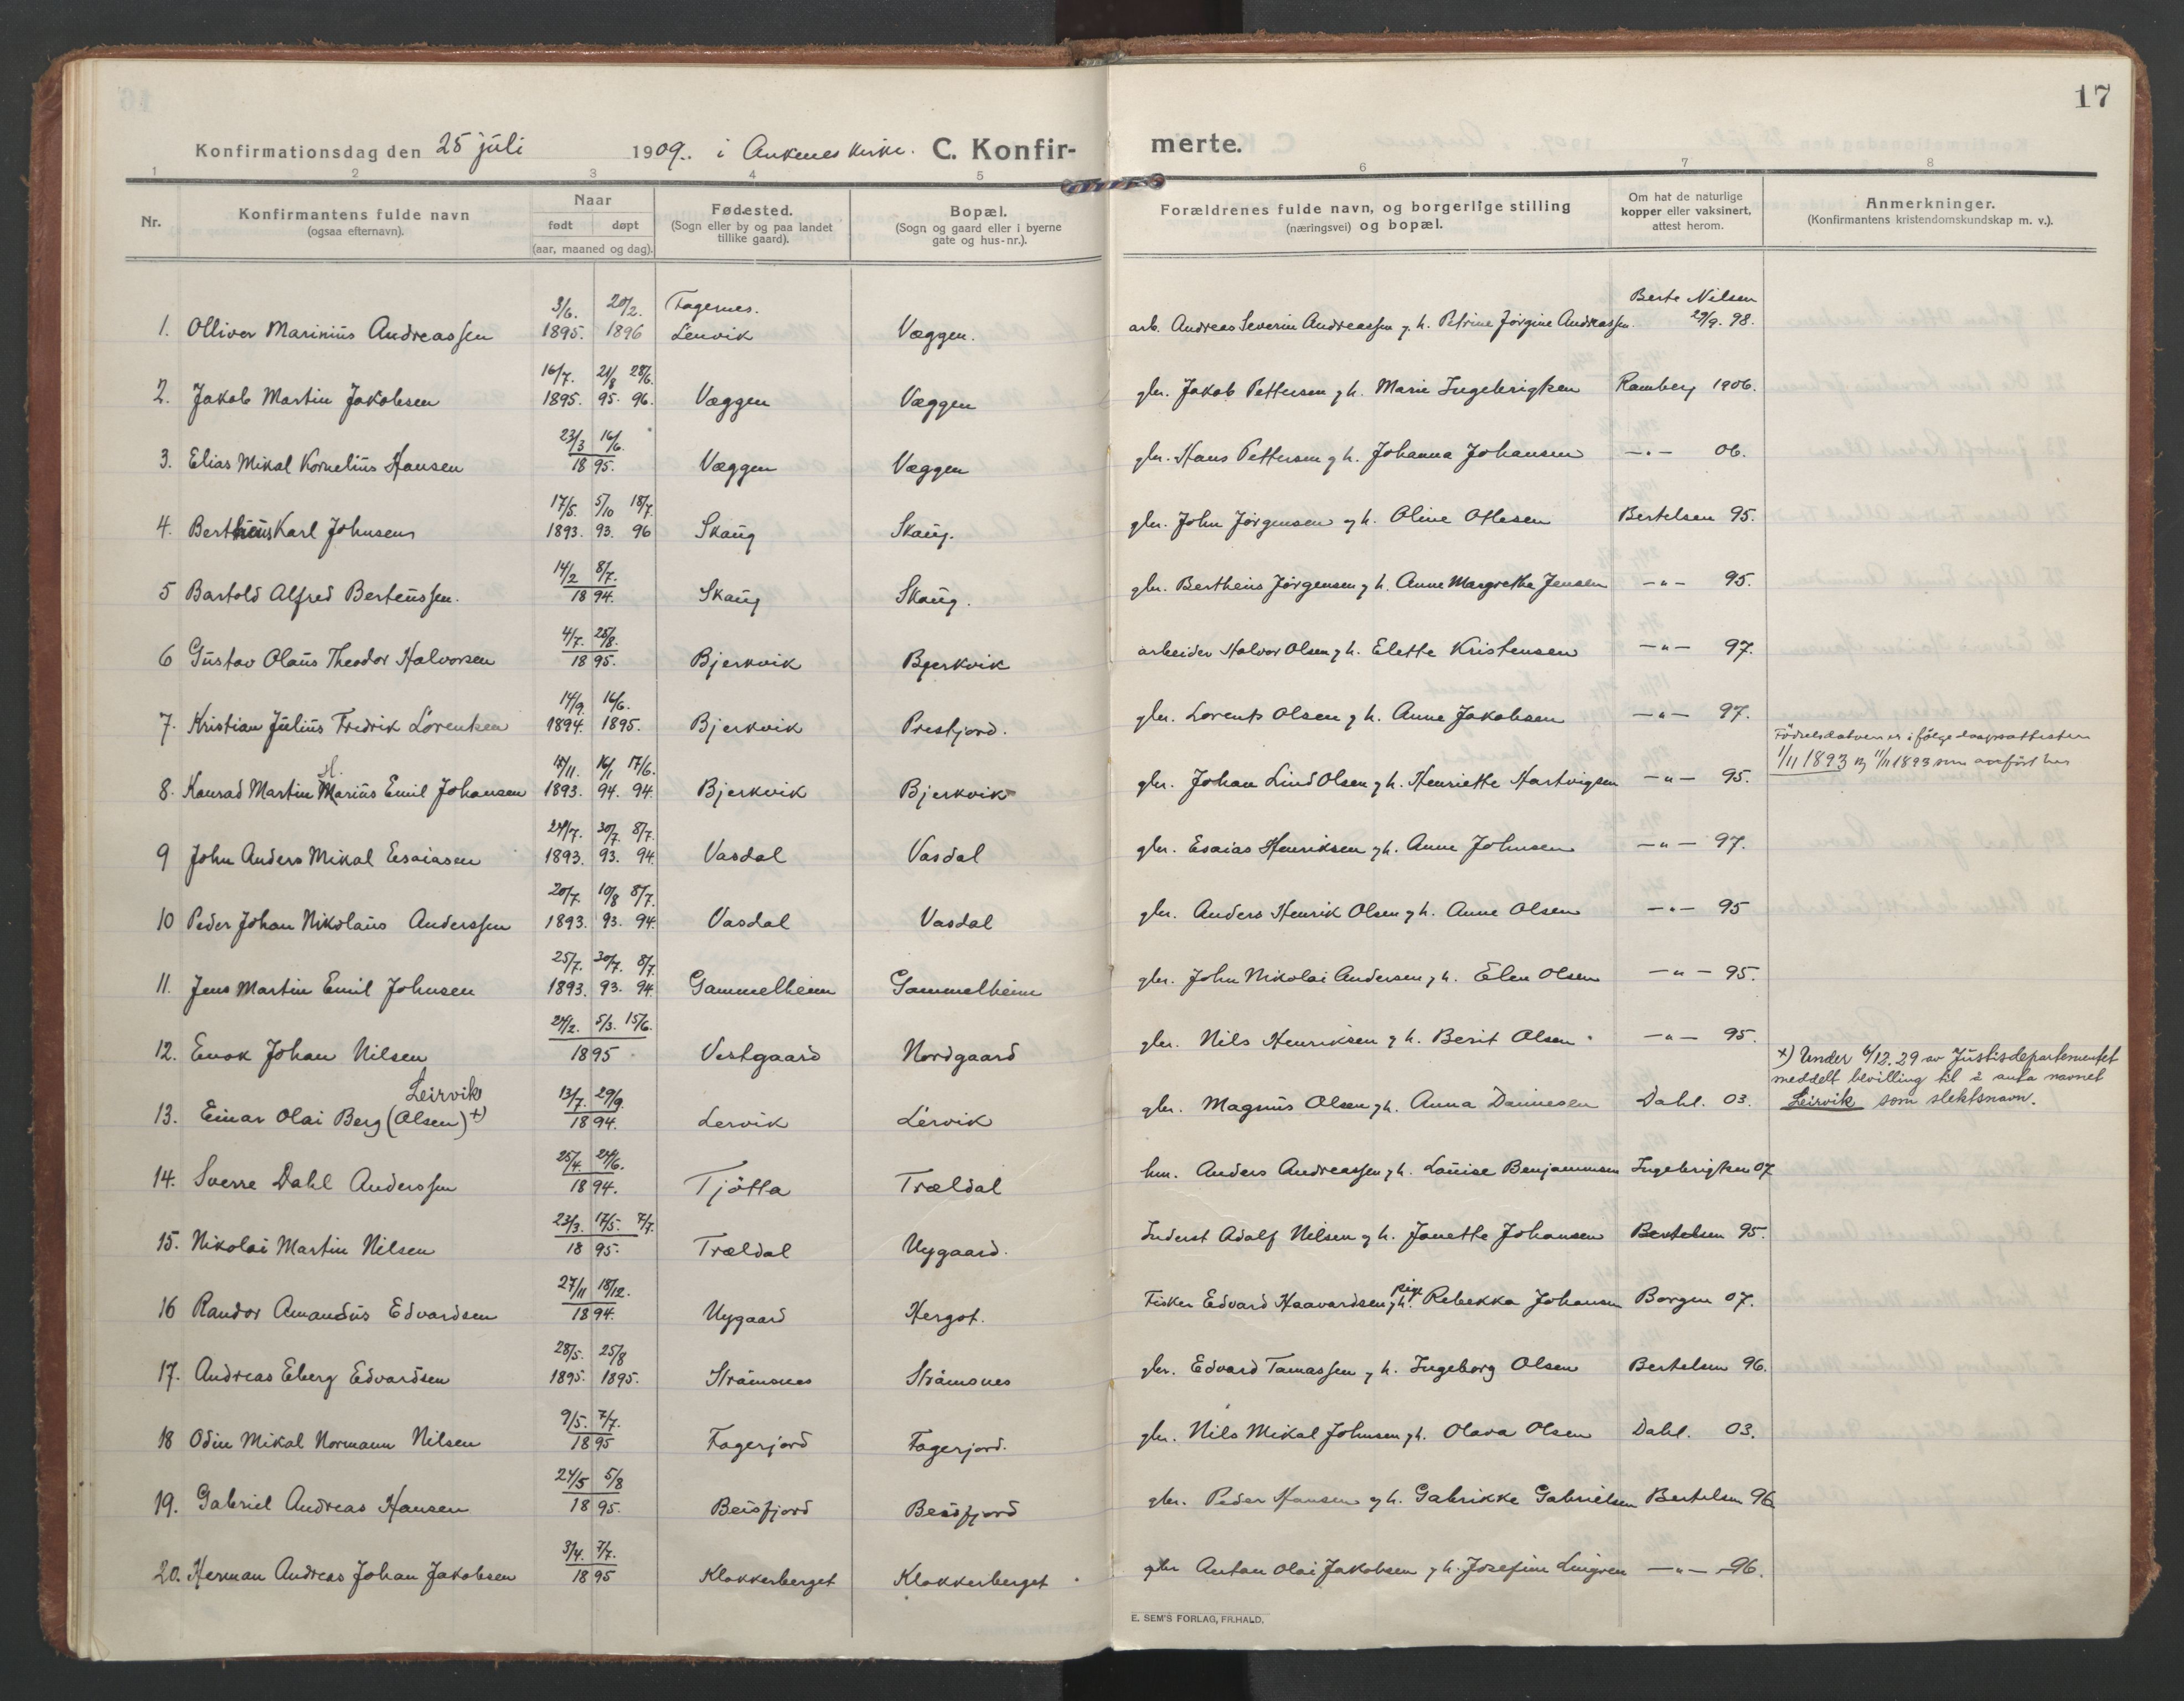 17
Konfirmationsdag den 25 juli 1909. i Ankenes kirke. C. Konfir-merte.
1 2 3 4 5 6 7 8
Nr. Konfirmantens fulde navn (ogsaa efternavn). Naar født døpt (aar, maaned og dag). Fødested. (Sogn eller by og paa landet tillike gaard). Bopæl. (Sogn og gaard eller i byerne gate og hus-nr.). Forældrenes fulde navn, og borgerlige stilling (næringsvei) og bopæl. Om hat de naturlige kopper eller vaksinert, attest herom. Anmerkninger. (Konfirmantens kristendomskundskap m. v.).
3/6. 20/2. Fagernes. Berte Nilsen
1. Olliver Marinius Andreassen 1895. 1896 Lenvik Væggen. arb. Andreas Severin Andreassen g. h. Petrine Jørgine Andreassen. 29/9. 98.
16/7. 21/8 28/6.
2. Jakob Martin Jakobsen 1895. 95. 96. Væggen Væggen gbr. Jakob Pettersen g h. Marie Ingebrigtsen Ramberg 1906.
23/3 16/6.
3. Elias Mikal Kornelius Hansen 1895. Væggen Væggen gbr. Hans Pettersen g h. Johanna Johansen —„— 06.
17/5. 5/10 18/7.
4. Bertheus Karl Johnsen 1893. 93. 96 Skaug Skaug. gbr. John Jørgensen g h. Oline Olesen Bertelsen 95.
14/2 8/7.
5 Bartold Alfred Berteussen. 1894. Skaug Skaug. gbr. Bertheus Jørgensen g h. Anne Margrethe Jensen —„— 95.
4/7. 25/8.
6 Gustav Olaus Theodor Halvorsen 1895. Bjerkvik Bjerkvik arbeider Halvor Olsen g h. Elette Kristensen —„— 97.
14/9. 16/6.
7. Kristian Julius Fredrik Lorentsen 1894. 1895. Bjerkvik Prestjord. gbr. Lorents Olsen g h. Anne Jakobsen —„— 97.
Fødselsdatoen er i følge daapsattesten
H. 17/11. 16/1 17/6. 1/11 1893 og 11/11 1893 som anført her
8. Konrad Martin Marius Emil Johansen 1893. 94. 94. Bjerkvik Bjerkvik gbr. Johan Lind Olsen g h. Henriette Hartvigsen —„— 95.
24/7. 30/7. 8/7.
9 John Anders Mikal Esaiasen 1893. 93. 94. Vasdal Vasdal gbr. Esaias Henriksen g h. Anne Johnsen —„— 97.
20/7. 10/8 8/7.
10 Peder Johan Nikolaus Anderssen 1893. 93. 94. Vasdal Vasdal gbr. Anders Henrik Olsen g h. Anne Olsen —„— 95
25/7. 30/7. 8/7.
11. Jens Martin Emil Johnsen 1893. 93. 94. Gammelheim Gammelheim gbr. John Nikolai Andersen g h. Elen Olsen —„— 95.
24/2. 5/3. 15/6.
12. Enok Johan Nilsen 1895 Vestgaard Nordgaard gbr. Nils Henriksen g h. Berit Olsen —„— 95.
+) Under 6/12.29 av Justisdepartementet
meddelt bevilling til å anta navnet
Leirvik 13/7. 29/9. Leirvik som slektsnavn.
13. Einar Olai Berg (Olsen) +) 1894. Lervik Lervik gbr. Magnus Olsen g h. Anna Dannesen Dahl. 03.
25/4. 24/6.
14. Sverre Dahl Anderssen 1894. Tjötta Trældal hm. Anders Andreassen g h. Louise Benjaminsen Ingebrigtsen 07
23/3. 17/5. 7/7.
15. Nikolai Martin Nilsen 1895. Trældal Nygaard. Inderst Adolf Nilsen g h. Janette Johansen Bertelsen 95.
27/11 18/12. pige
16 Randor Amandus Edvardsen 1894. Nygaard Hergot. Fisker Edvard Haavardsen g h. Rebekka Johansen Borgen 07.
28/5. 25/8
17. Andreas Eberg Edvardsen 1895. 1895. Stråmsnes Stråmsnes gbr. Edvard Tamassen g h. Ingeborg Olsen Bertelsen 96.
9/5. 7/7.
18 Odin Mikal Normann Nilsen 1895 Fagerjord Fagerjord. gbr. Nils Mikal Johnsen g h. Olava Olsen Dahl. 03.
24/5 5/8
19. Gabriel Andreas Hansen 1895. Beisfjord Beisfjord gbr. Peder Hansen g h. Gabrikke Gabrielsen Bertelsen 96
3/4. 7/7.
20. Herman Andreas Johan Jakobsen 1895 Klokkerberget Klokkerberget gbr Antan Olai Jakobsen g h. Josefine Lingren —„— 96.
E. SEM'S FORLAG, FR.HALD.